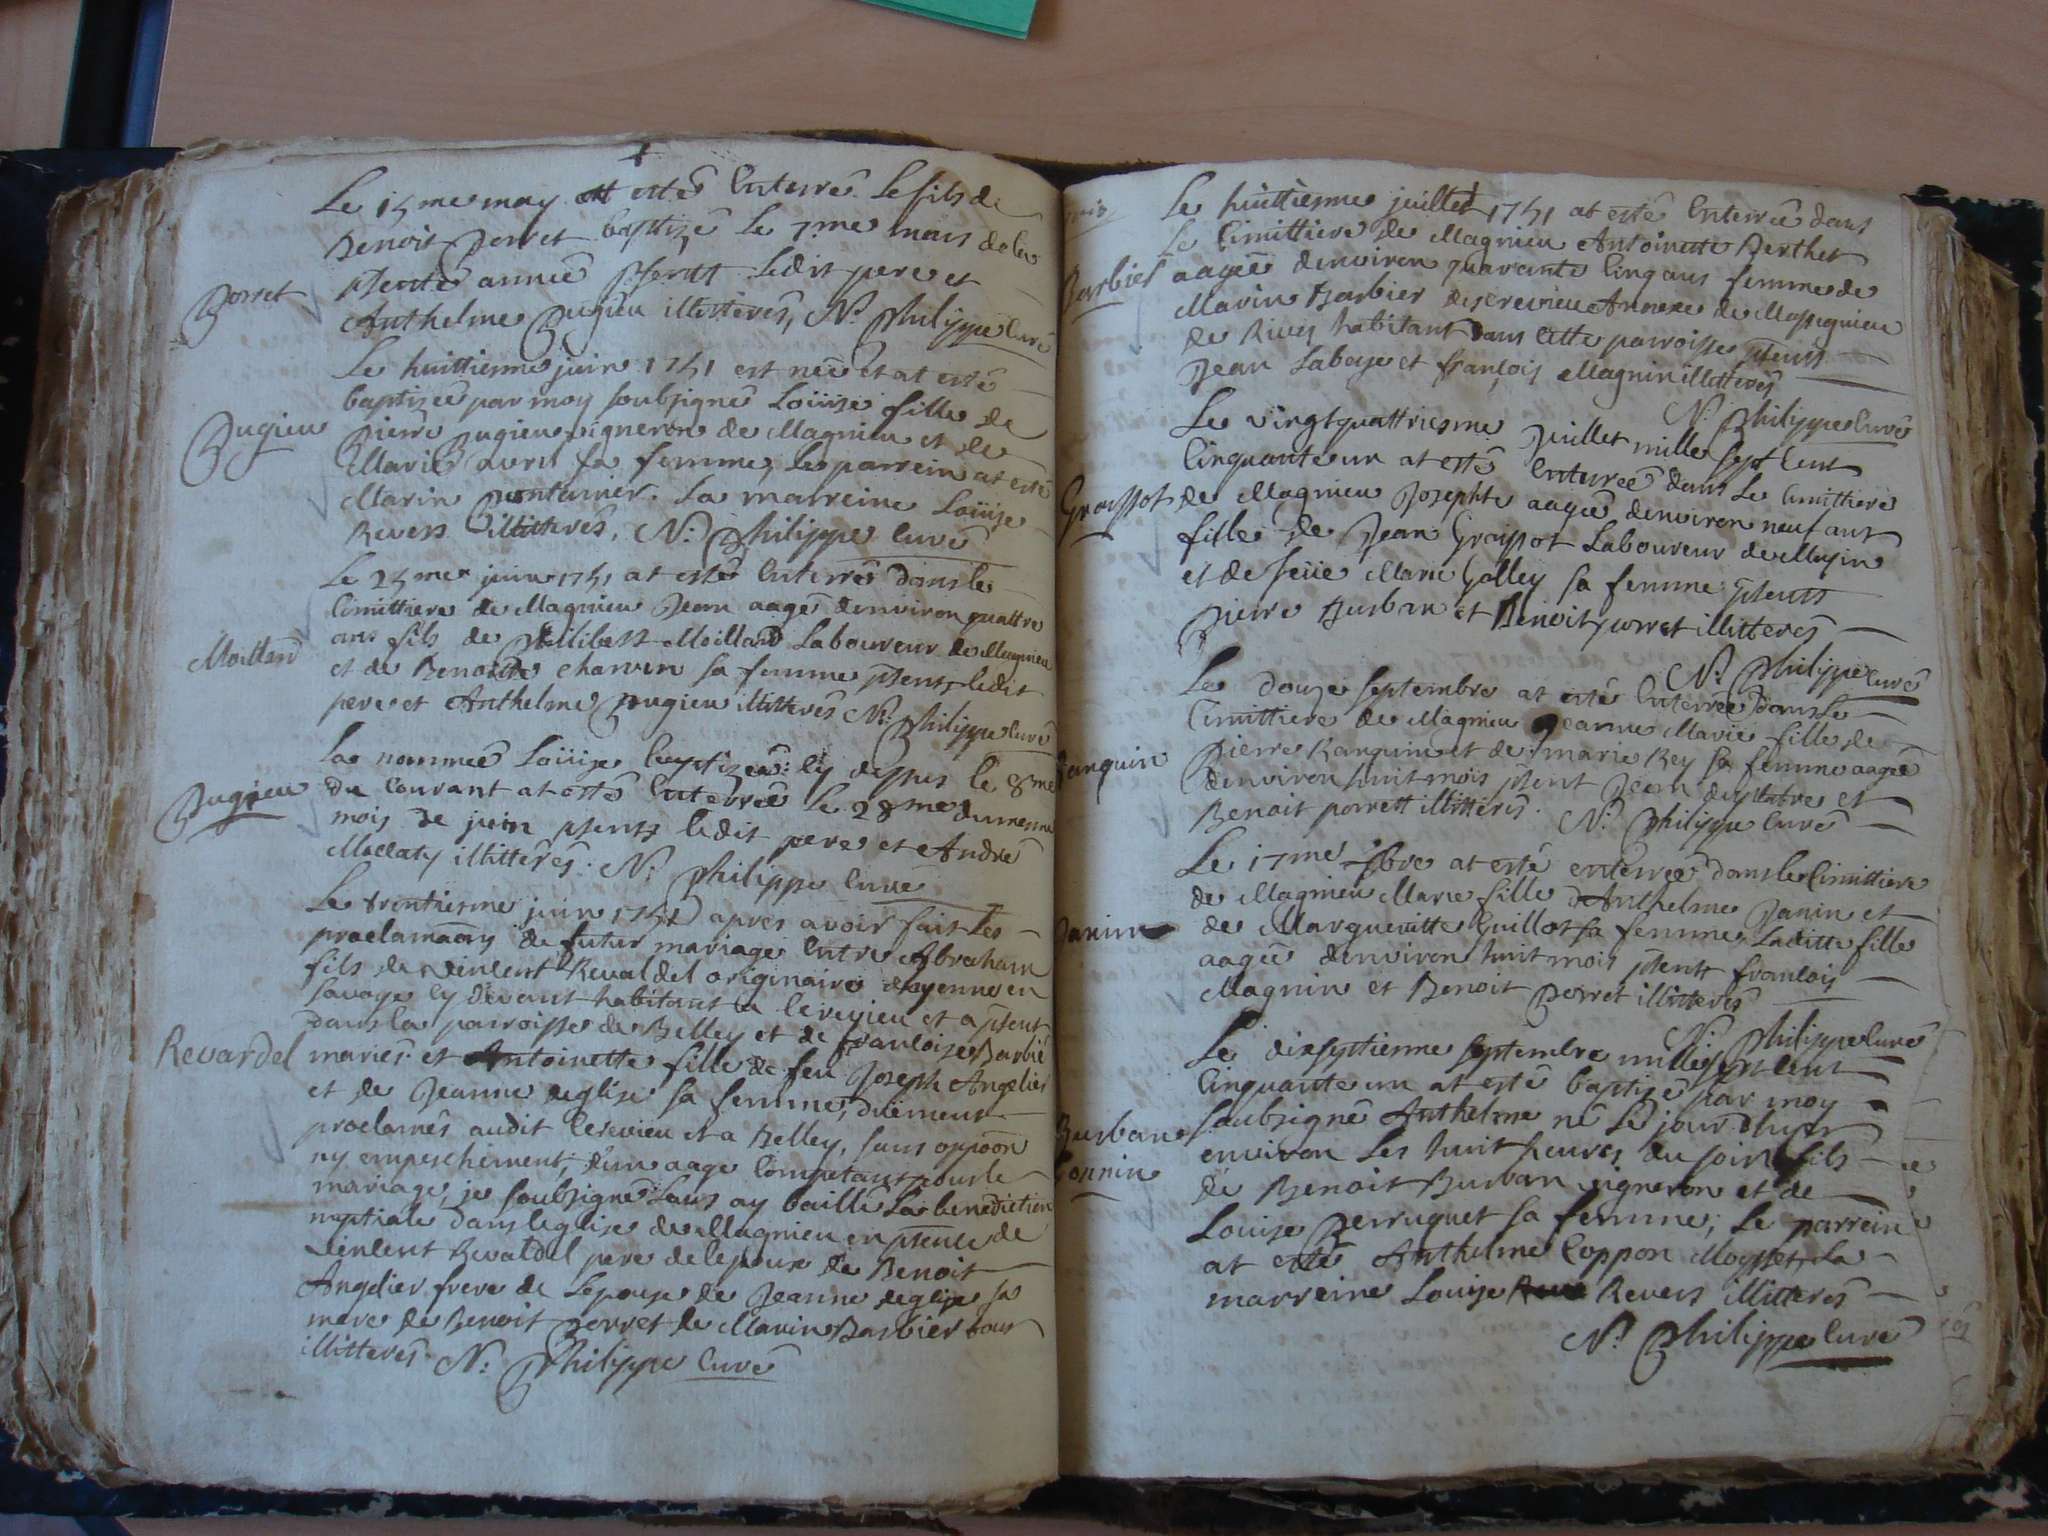 Le 15me may at esté Enterré Le fils de
Benoit Perret baptizé le 7me mars de la
psente année psents ledit pere et
Perret
Anthelme Pugieu illitterés, N. Philippe Curé
Le huittiesme juin 1751 est née et at esté
baptizée par moy soubsigné Loüise fille de
Pugieu
Pierre Pugieu vigneron de Magnieu et de
Marie avril sa femme, le parrein at esté
Marin Pontanier. La marreine Loüise
Revers illitterés, N: Philippe Curé
Le 25me juin 1751 at esté Enterré dans le
Cimittiere de Magnieu Jean aagé denviron quattre
ans fils de Philibert Moilland Laboureur de Magnieu
Moilland
et de Benoitte Charvin sa femme psents ledit
pere et Anthelme Pugieu illitterés N: Philippe Curé
La nommée Loüise baptizée cy dessus le 8me
Pugieu
du Courant at esté Enterrée le 28me du mesme
mois de juin psents ledit pere et André
illitterés. N: Philippe Curé
Le trentiesme juin 1751 apres avoir fait les
proclamaons de futur mariage Entre Abraham
fils de Vincent Revardel originaire dayenne en
Savoye cy devant habitant a Cerevieu et a psent
dans la parroisse de Belley et de francoise Barbié
Revardel
mariés et Antoinette fille de feu Joseph Angelier
et de Jeanne deglise sa femme, düement
proclamés audit Cerevieu et a Belley, sans oppoon
ny empeschement, d'un aage Competant pour le
mariage, je soubsigné Leurs ay baillé La benediction
nuptiale dans leglise de Magnieu en psence de
Vincent Revardel pere de lepoux de Benoit
Angelier frere de Lepouse de Jeanne deglise sa
mere de Benoit Perret de Marin Barbier tous
illitterés. N: Philippe Curé
Le huittiesme juillet 1751 at esté Enterrée dans
Le Cimittiere de Magnieu Antoinette Berthet
Barbier
aagée denviron quarante Cinq ans femme de
Marin Barbier de Cerevieu Annexe de Massignieu
de Rives habitant dans Cette parroisse psents
Jean Labeye et françois Magnin illitterés
N: Philippe Curé
Le vingtquattriesme Juillet mille sept Cent
Cinquante un at esté Enterrée dans le Cimittiere
Graissot
de Magnieu Josephte aagée denviron neuf ans
fille de Jean Graissot Laboureur de Musin
et de feüe Marie Golley sa femme psents
Pierre Burban et Benoit perret illitterés
N. Philippe Curé
Le douze septembre at esté Enterrée dans Le
Cimittiere de Magnieu Jeanne Marie fille de
Janquin
Pierre Ranquin et de marie Rey sa femme aagée
denviron huit mois psent Jean et
Benoit perrett illitterés. N: Philippe Curé
Le 17me 7bre at esté enterrée dans le Cimittiere
de Magnieu Marie fille d'Anthelme Janin et
Janin
de Margueritte Guillot sa femme, Laditte fille
aagée denviron huit mois psents francois
Magnin et Benoit Perret illitterés
N: Philippe Curé
Le dixseptiesme septembre mille sept Cent
Cinquante un at esté baptizé par moy
Burban
soubsigné Anthelme né Le jour d'huy
environ les huit heures du soir fils
de Benoit Burban vigneron et de
Louise Perruquet sa femme; Le parrein
at esté Anthelme Coppon Moyset, La
marreine Louise Revers illitterés
N: Philippe Curé